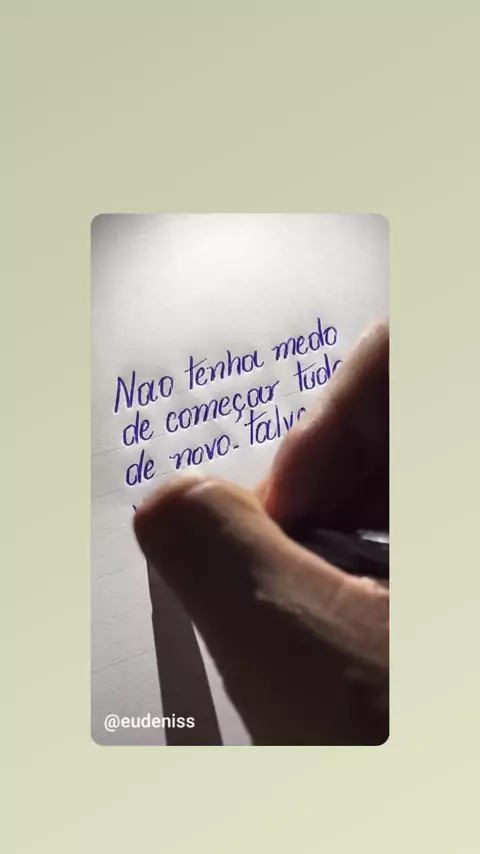 Nao tenha medo
de começar
de novo.
@eudeniss